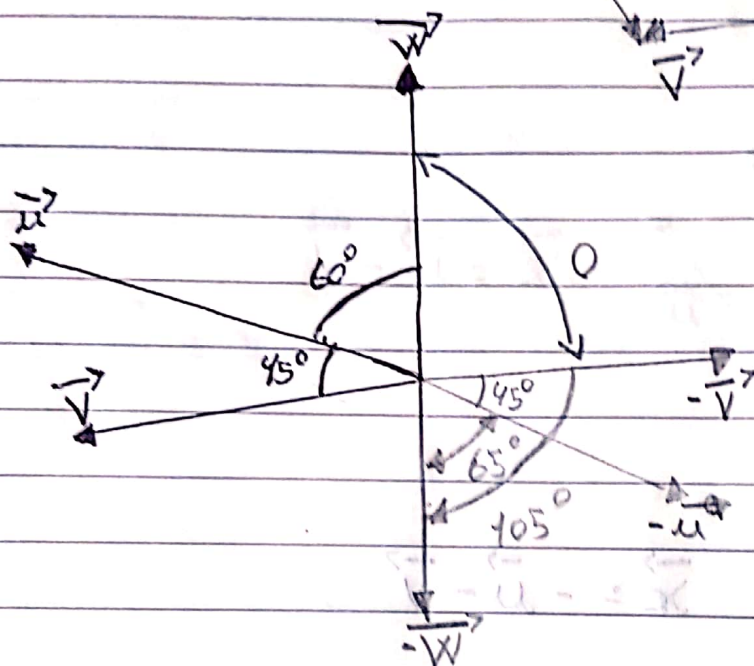 W⃗
V⃗
u⃗
60°
θ
45°
V⃗
45°
-V⃗
65°
105°
-u⃗
-W⃗